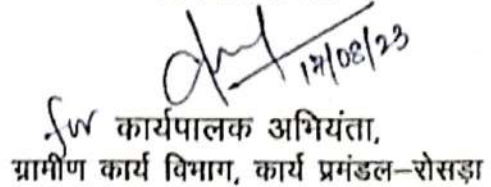 17/08/23
for कार्यपालक अभियंता,
ग्रामीण कार्य विभाग, कार्य प्रमंडल–रोसड़ा